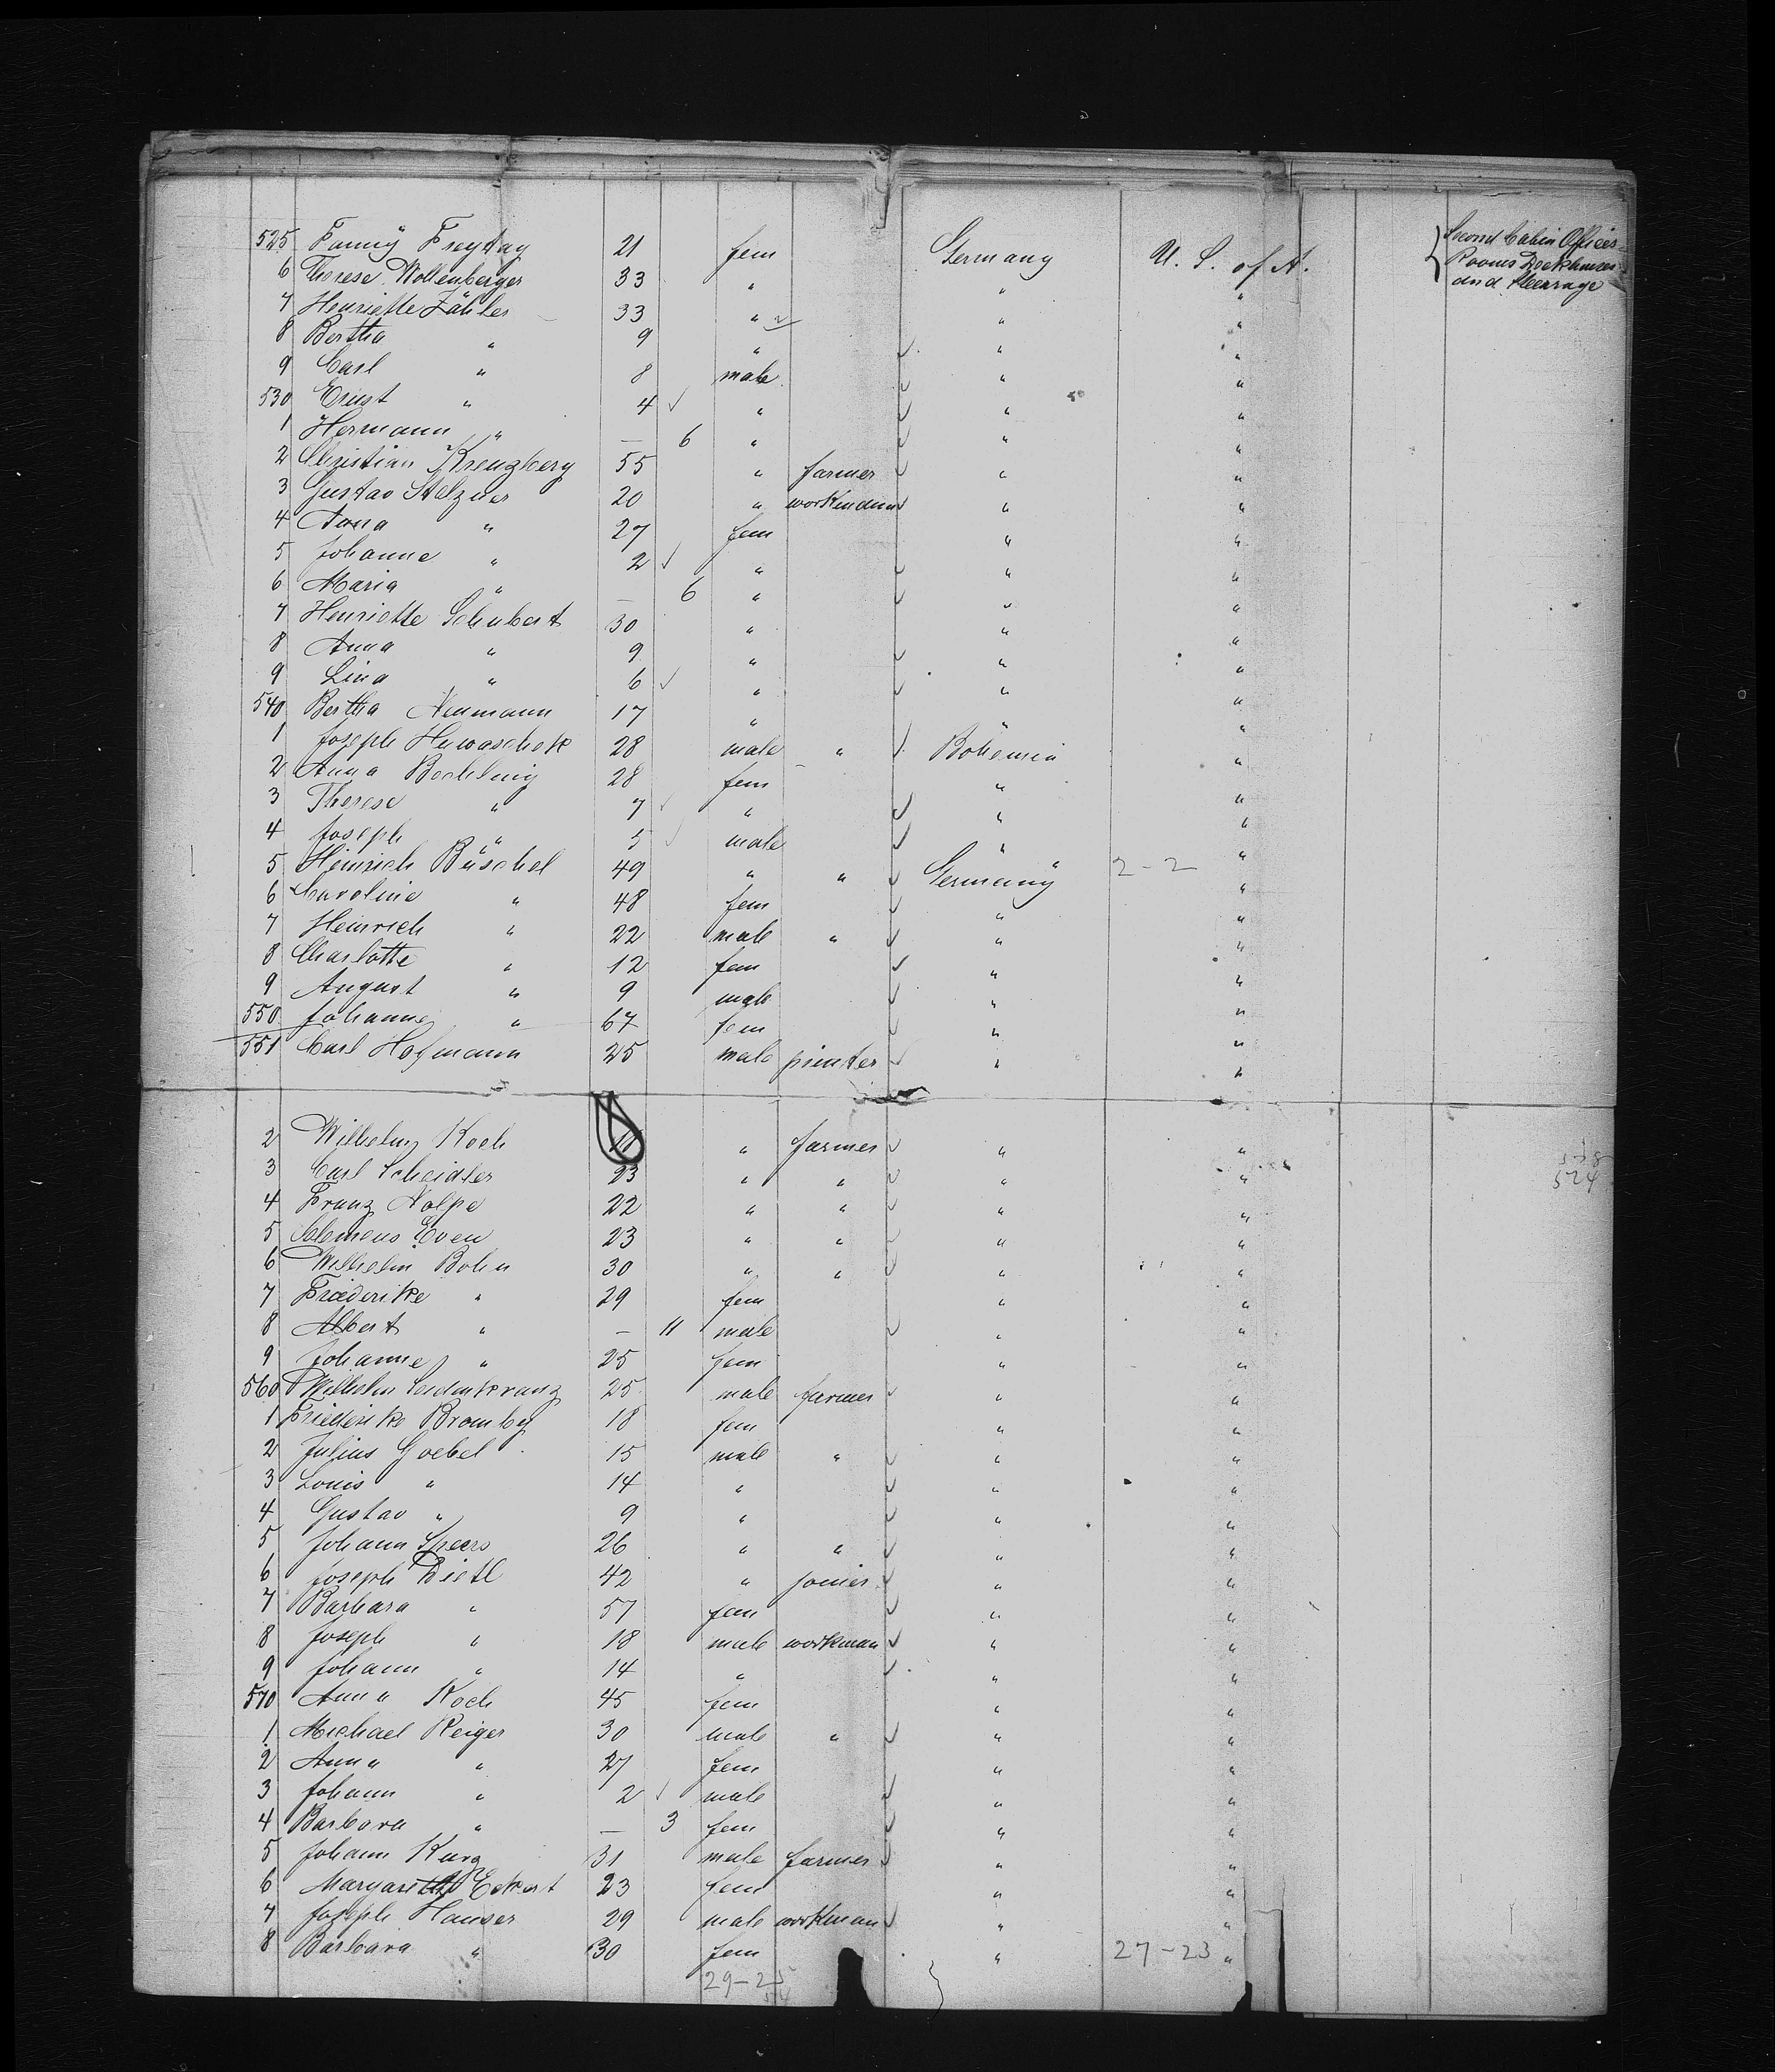 525 Fanny Freytag 21 fem Germany U. S. of A. Second Cabin Officers
6 Therese Wollenberger 33 " " " Rooms Deckhouses
7 Henriette Zähler 33 " " " and Steerage
8 Bertha " 9 " " "
9 Carl " 8 male " "
530 Ernst " 4 " " "
1 Hermann " — 6 " " "
2 Christian Kreuzberg 55 " farmer " "
3 Gustav Stelzner 20 " workman " "
4 Anna " 27 fem " "
5 Johanne " 2 " " "
6 Maria " — 6 " " "
7 Henriette Schubert 30 " " "
8 Anna " 9 " " "
9 Lina " 6 " " "
540 Bertha Neumann 17 " " "
1 Joseph 28 male " Bohemia "
2 Anna 28 fem " "
3 Therese " 7 " " "
4 Joseph " 5 male " "
5 Heinrich Büschel 49 " " Germany 2-2 "
6 Caroline " 48 fem " "
7 Heinrich " 22 male " " "
8 Charlotte " 12 fem " "
9 August " 9 male " "
550 Johanne " 67 fem " "
551 Carl Hofmann 25 male printer " "
2 Wilhelm Koch " farmer " "
3 Carl Scheidler 23 " " " " 524
4 Franz Nolpe 22 " " " "
5 Clemens Even 23 " " " "
6 Wilhelm Bohn 30 " " " "
7 Friederike " 29 fem " "
8 Albert " — 11 male " "
9 Johanne " 25 fem " "
560 Wilhelm Seidenkranz 25 male farmer " "
1 Friederike Bromby 18 fem " "
2 Julius Goebel 15 male " " "
3 Louis " 14 " " "
4 Gustav " 9 " " "
5 Johann Speers 26 " " " "
6 Joseph Dietl 42 " joiner " "
7 Barbara " 57 fem " "
8 Joseph " 18 male workman " "
9 Johann " 14 " " "
570 Anna Koch 45 fem " "
1 Michael Reiger 30 male " " "
2 Anna " 27 fem " "
3 Johann " 2 male " "
4 Barbara " — 3 fem " "
5 Johann Kurz 31 male farmer " "
6 Margareth Eckert 23 fem " "
7 Joseph Hauser 29 male workman " "
8 Barbara " 30 fem " 27-23 "
29-25
54